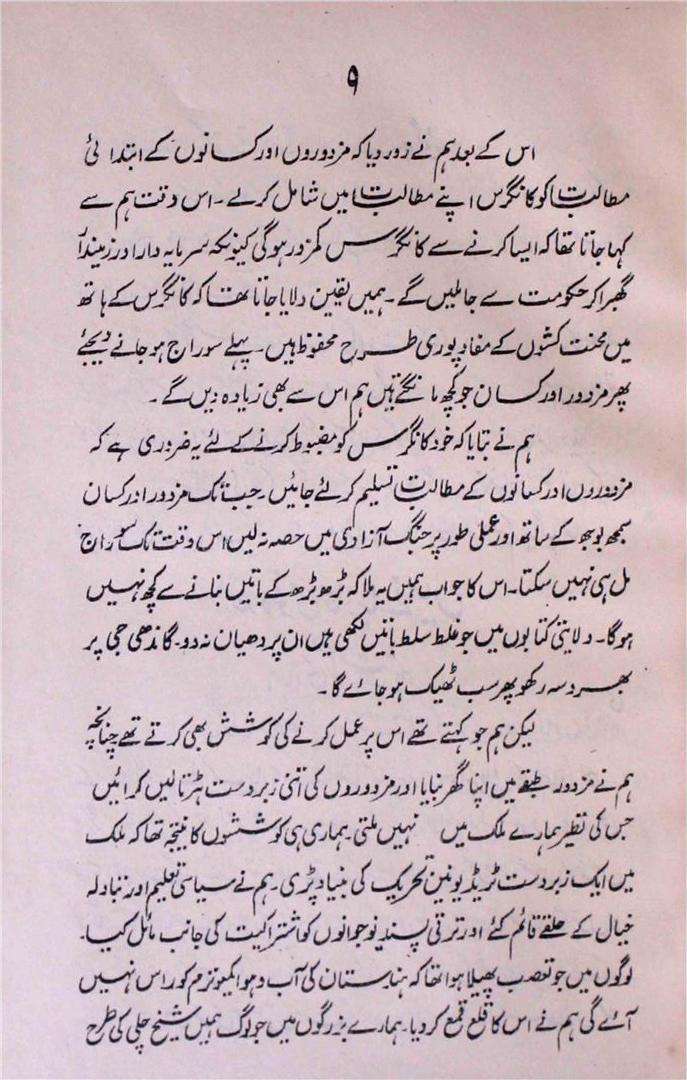 ۹
اس کے بعد ہم نے زور دیا کہ مزدوروں اور کسانوں کے ابتدائی
مطالبات کو کانگرس اپنے مطالبات میں شامل کرلے۔ اس وقت ہم سے
کہا جاتا تھا کہ ایسا کرنے سے کانگرس کمزور ہوگی کیونکہ سرمایہ دار اور زمیندار
گھبرا کر حکومت سے جا ملیں گے۔ ہمیں یقین دلایا جاتا تھا کہ کانگرس کے ہاتھ
میں محنت کشوں کے مفاد پوری طرح محفوظ ہیں۔ پہلے سوراج ہو جانے دیجئے
پھر مزدور اور کسان جو کچھ مانگتے ہیں ہم اس سے بھی زیادہ دیں گے۔
ہم نے بتایا کہ خود کانگرس کو مضبوط کرنے کے لئے یہ ضروری ہے کہ
مزدوروں اور کسانوں کے مطالبات تسلیم کرلئے جائیں۔ جب تک مزدور اور کسان
سمجھ بوجھ کے ساتھ اور عملی طور پر جنگ آزادی میں حصہ نہ لیں اس وقت تک سوراج
مل ہی نہیں سکتا۔ اس کا جواب ہمیں یہ ملا کہ بڑھ بڑھ کے باتیں بنانے سے کچھ نہیں
ہوگا۔ ولایتی کتابوں میں جو غلط سلط باتیں لکھی ہیں ان پر دھیان نہ دو۔ گاندھی جی پر
بھروسہ رکھو پھر سب ٹھیک ہو جائے گا۔
لیکن ہم جو کہتے تھے اس پر عمل کرنے کی کوشش بھی کرتے تھے چنانچہ
ہم نے مزدور طبقے میں اپنا گھر بنایا اور مزدوروں کی اتنی زبردست ہڑتالیں کرائیں
جس کی نظیر ہمارے ملک میں نہیں ملتی۔ ہماری ہی کوششوں کا نتیجہ تھا کہ ملک
میں ایک زبردست ٹریڈ یونین تحریک کی بنیاد پڑی۔ ہم نے سیاسی تعلیم اور تبادلہ
خیال کے حلقے قائم کئے اور ترقی پسند نوجوانوں کو اشتراکیت کی جانب مائل کیا۔
لوگوں میں جو تعصب پھیلا ہوا تھا کہ ہندستان کی آب و ہوا کمیونزم کو راس نہیں
آئے گی ہم نے اس کا قلع قمع کر دیا۔ ہمارے بزرگوں میں جو لوگ ہمیں شیخ چلی کی طرح